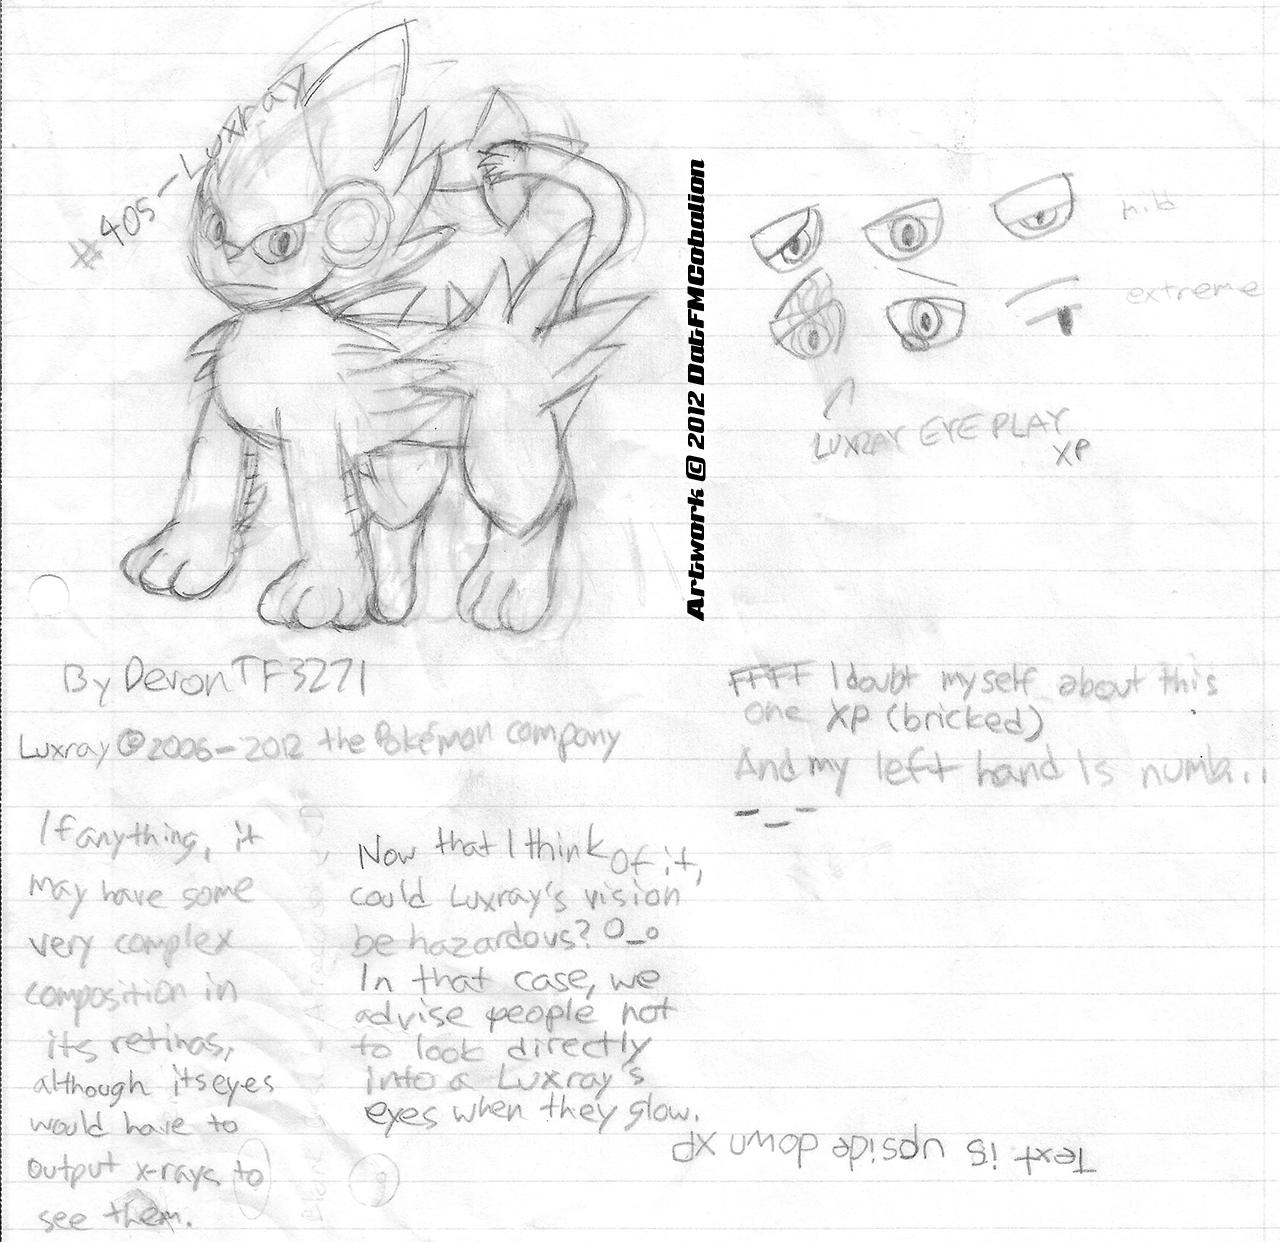 #405-Luxray
Artwork © 2012 DatFMCobalion
mild
extreme
LUXRAY EYE PLAY
XP
By DevonTF3271
Luxray © 2006-2012 the Pokémon company
FFFF I doubt myself about this
one XP (bricked)
And my left hand Is numb...
-_-
If anything, it
may have some
very complex
composition in
its retinas,
although its eyes
would have to
output x-rays to
see them.
Now that I think of it,
could Luxray's vision
be hazardous? O_o
In that case, we
advise people not
to look directly
into a Luxray's
eyes when they glow.
Text is upside down XP